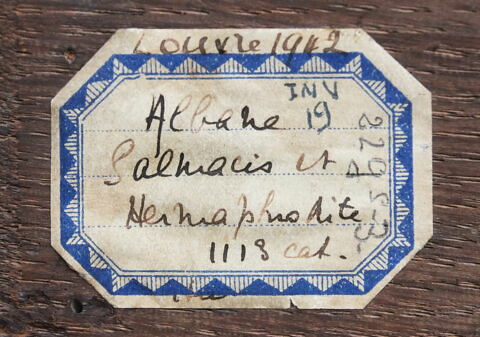 Louvre 1942
INV
19
Albane
Salmacis et
Hermaphrodite
1113 cat.